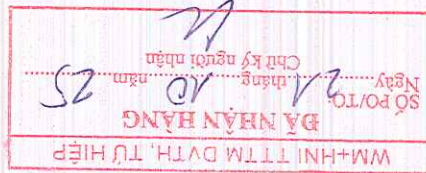 WM+HNI TTTM DVTH, TỨ HIỆP
ĐÃ NHẬN HÀNG
SỐ PO/TO:
Ngày 21 tháng 10 năm 25
Chữ ký người nhận